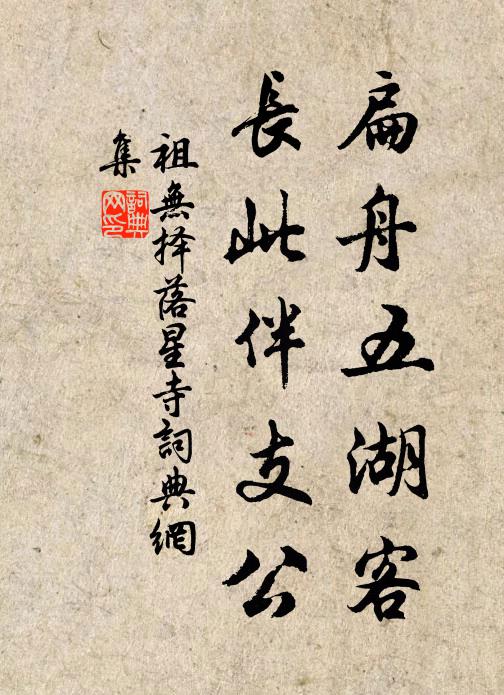 扁舟五湖客
長此伴支公
祖無择落星寺詞典網
集
詞典
网印